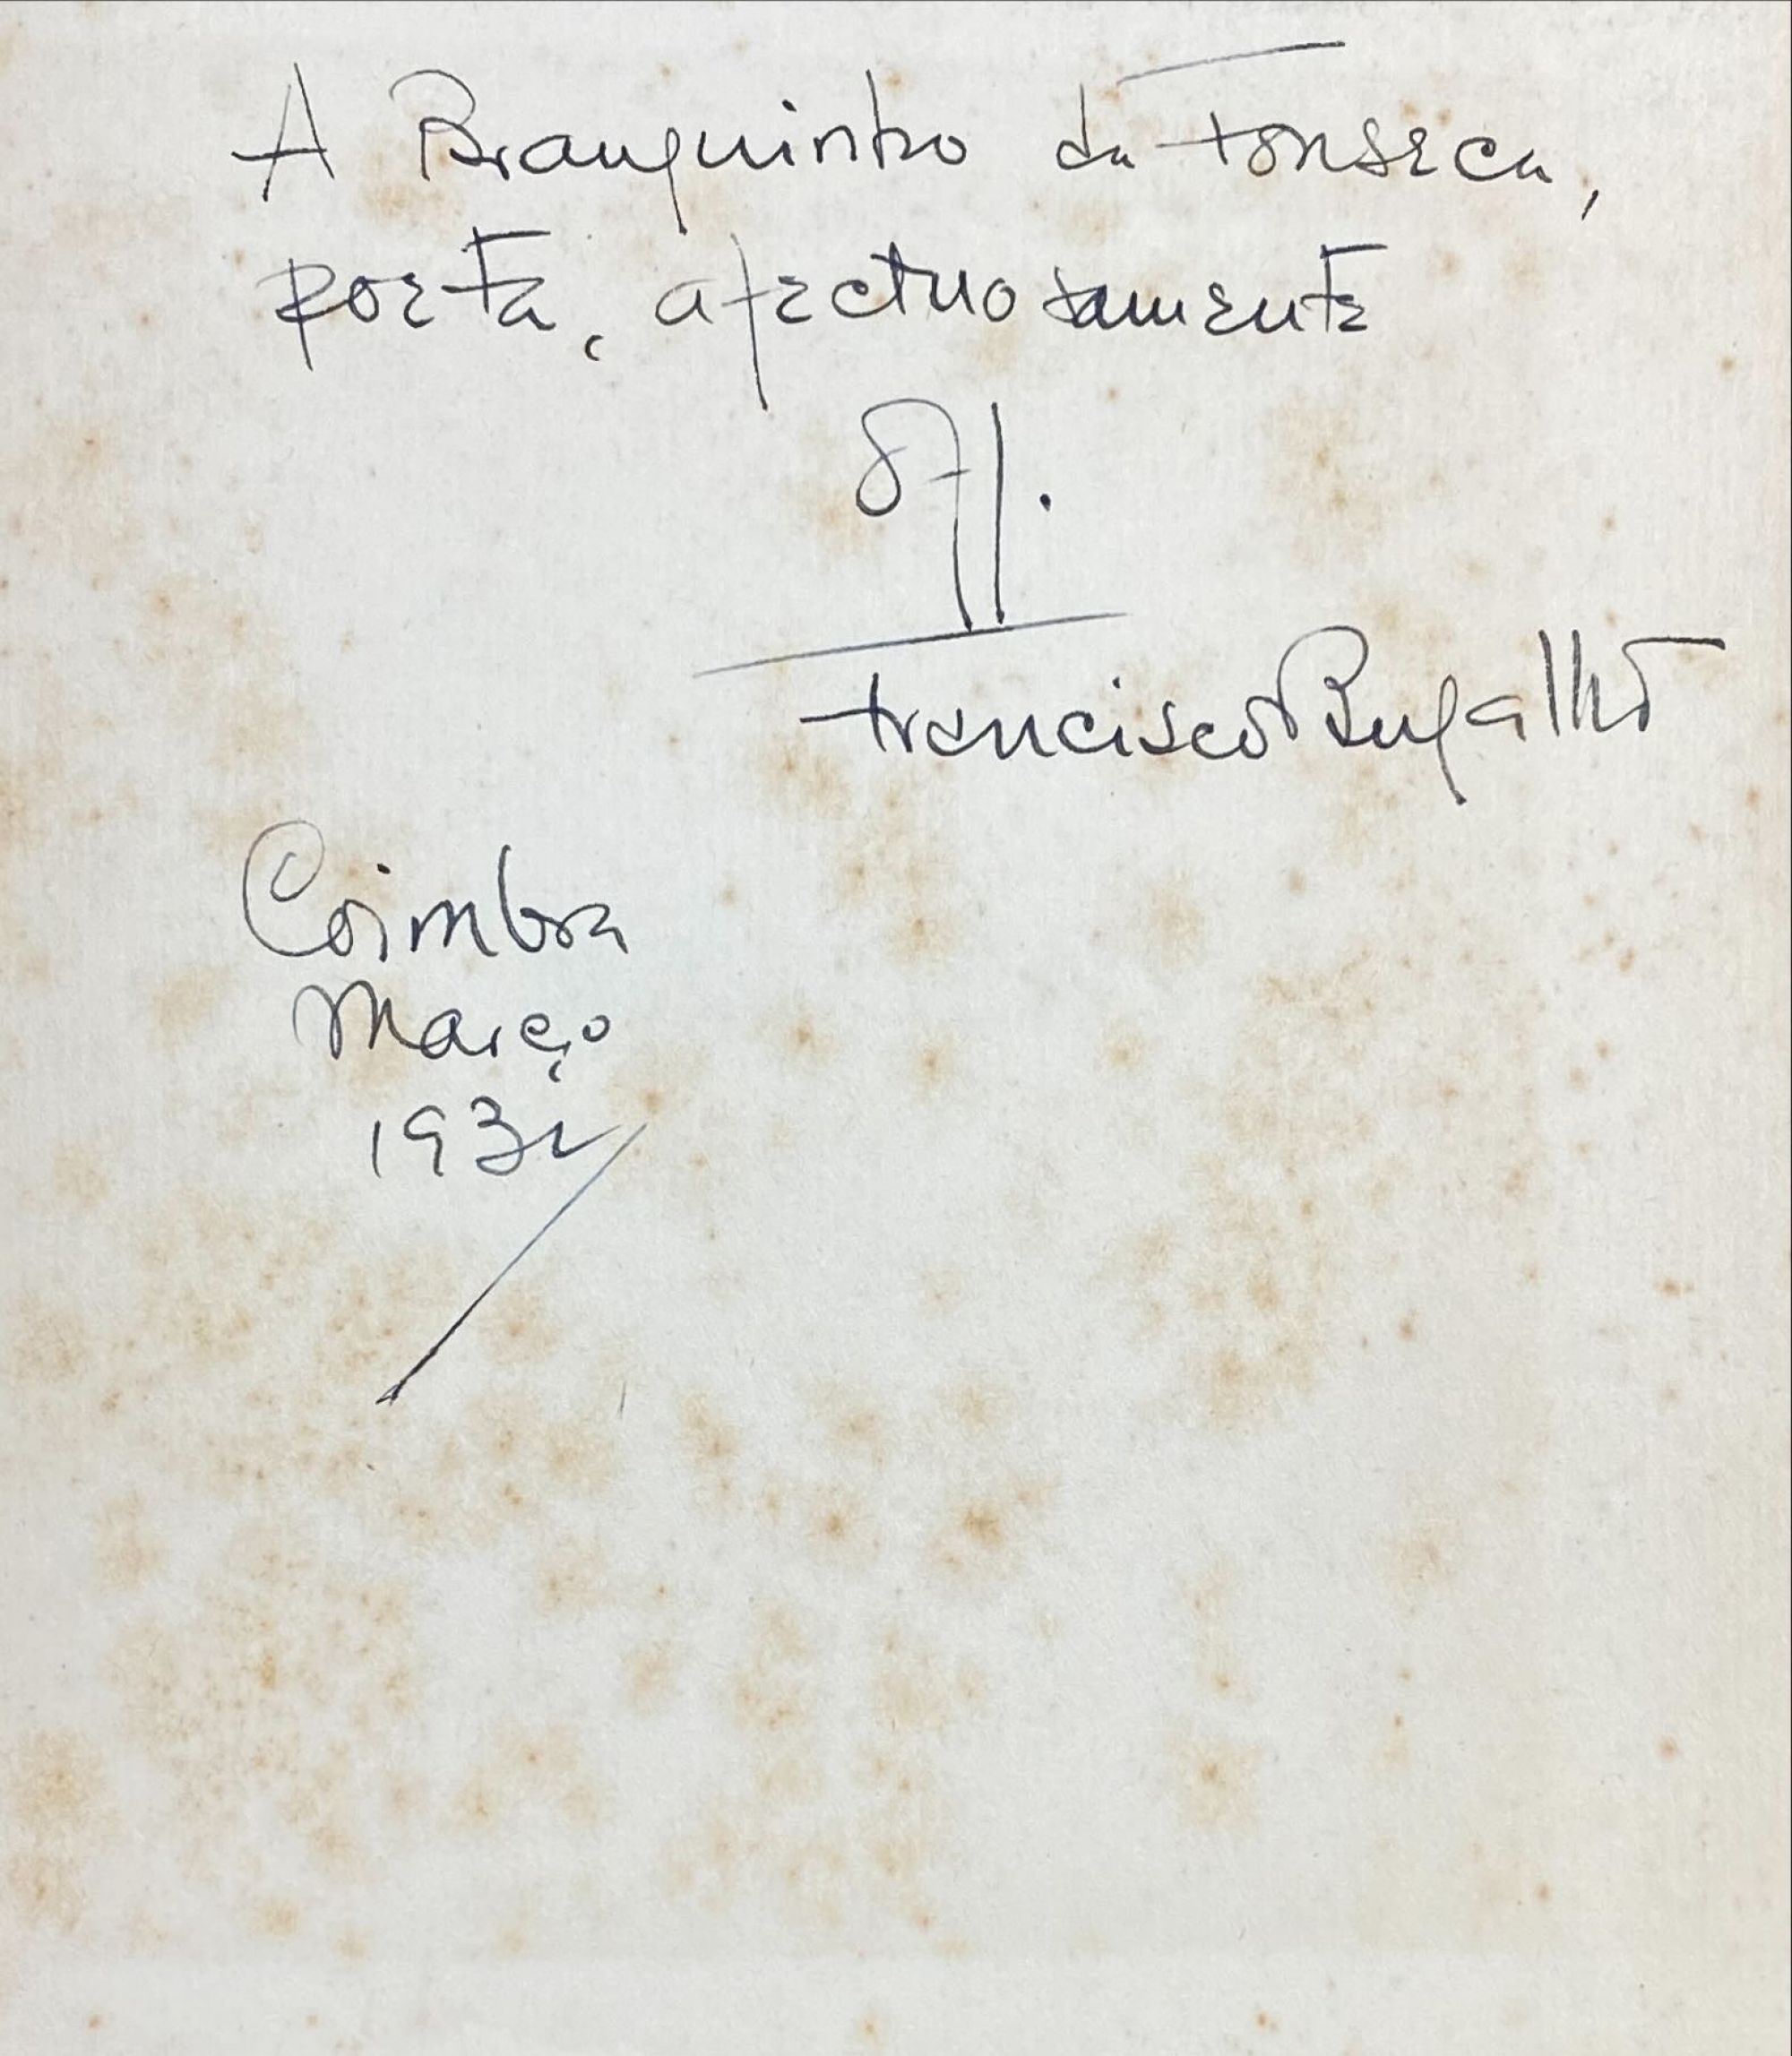 A Branquinho da Fonseca,
poeta, afectuosamente
Off.
Francisco Bugalho
Coimbra
Março
1932